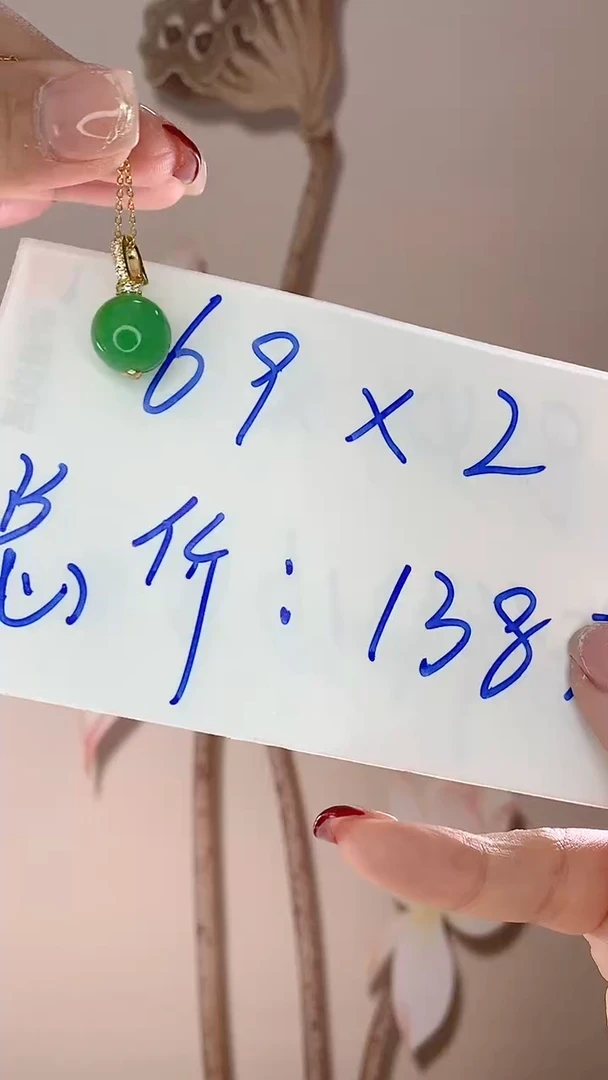 69×2
总价：138